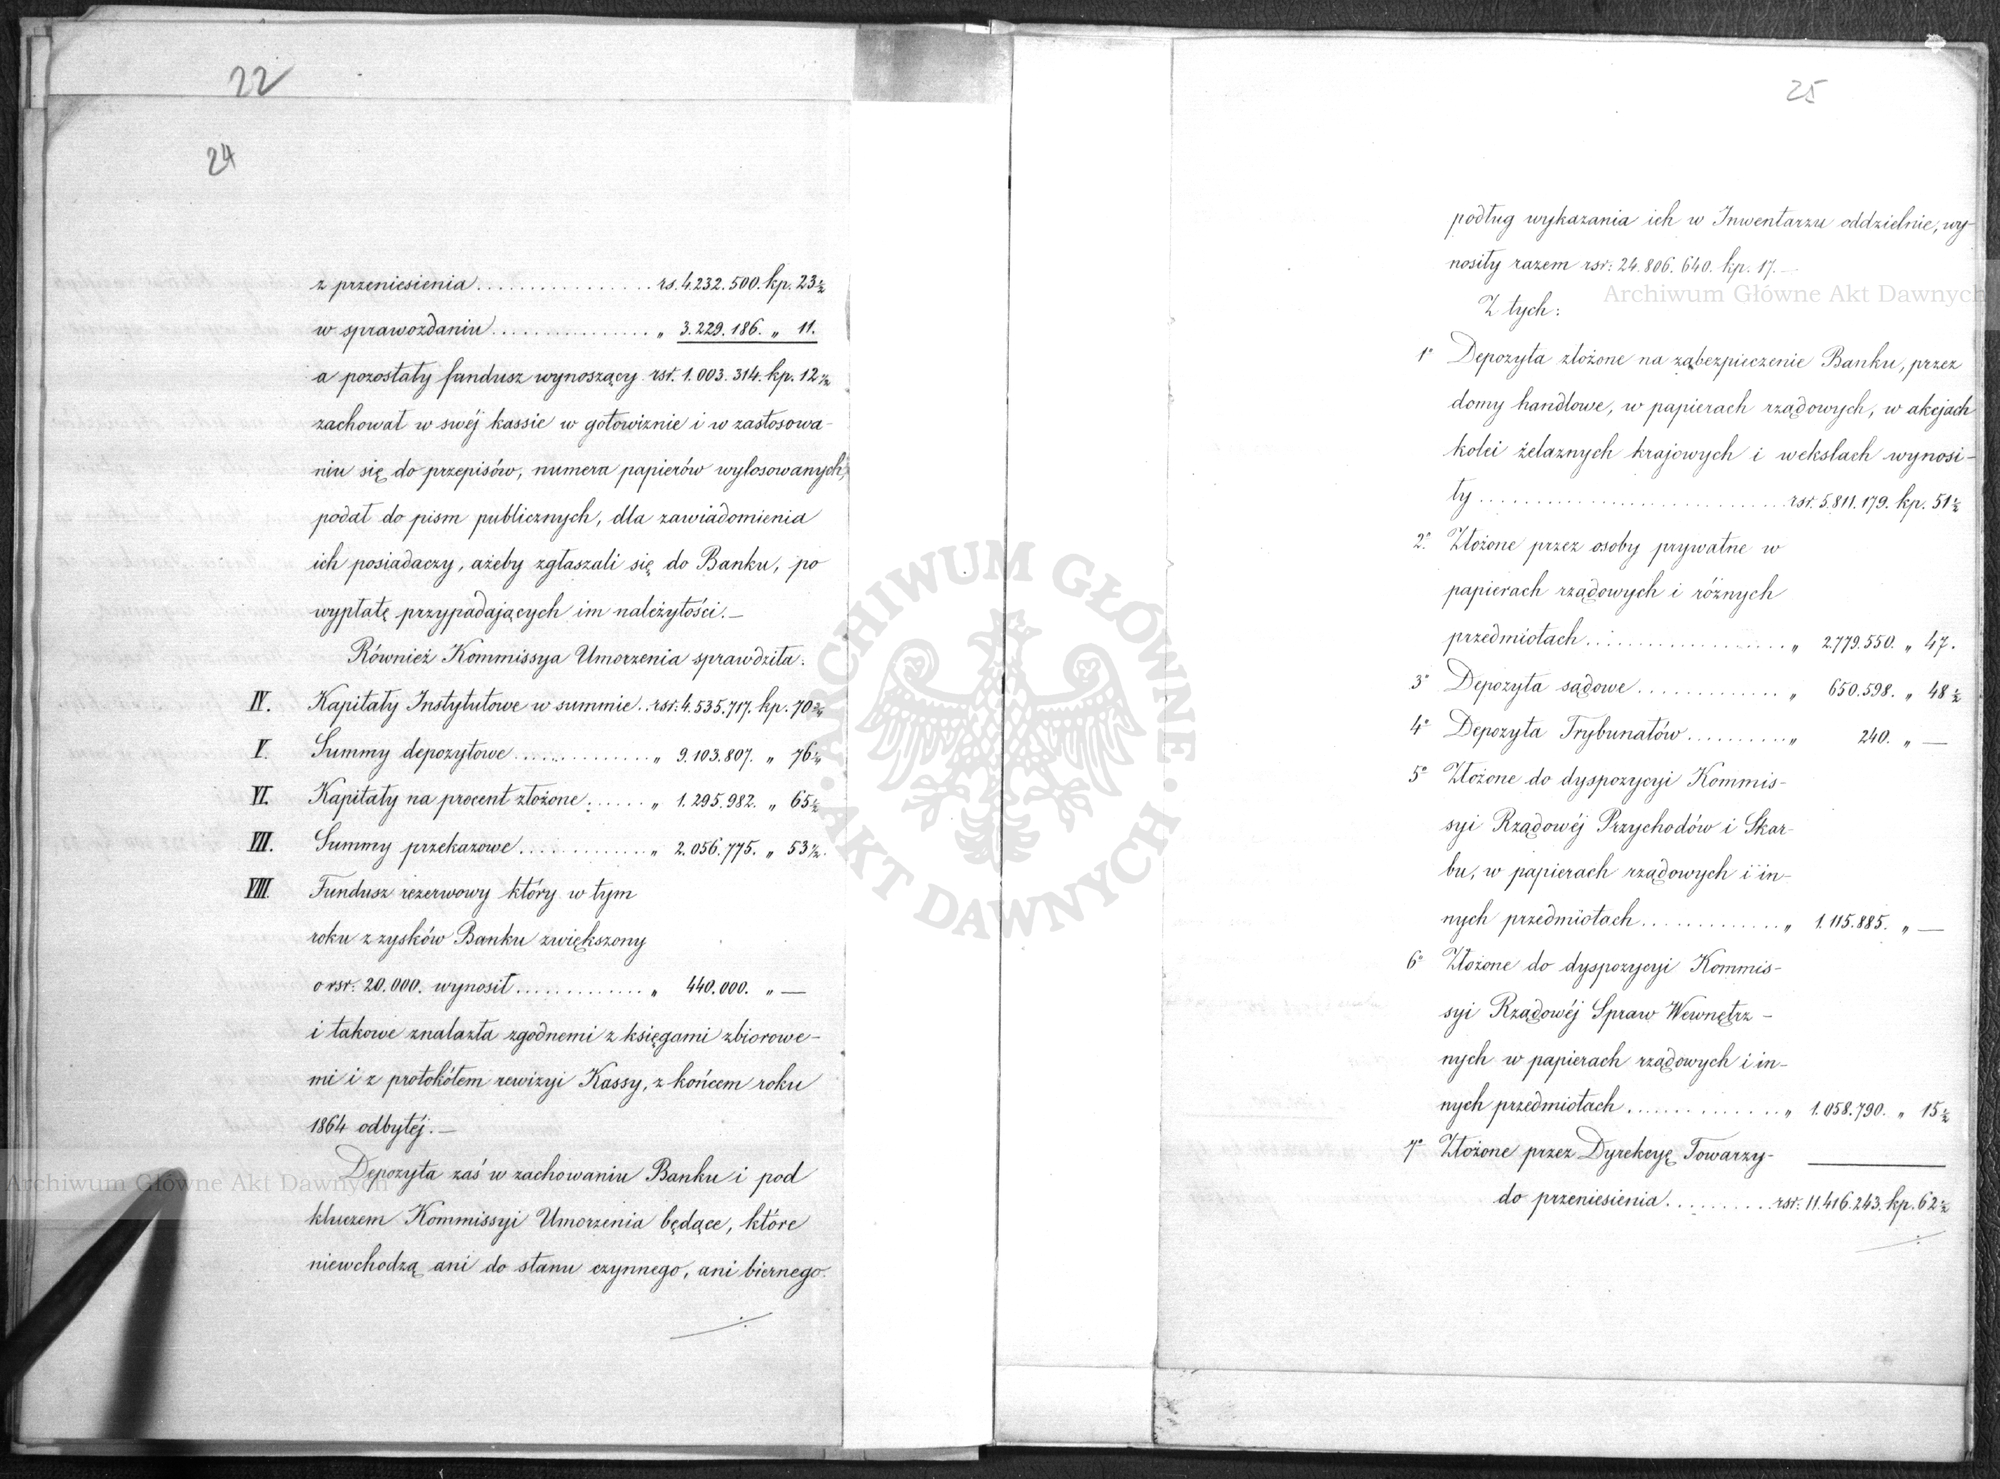 22
24
z przeniesienia ................. rs. 4.232.500. kp. 23 ½
w sprawozdaniu ................ „ 3.229.186. „ 11.
a pozostały fundusz wynoszący rsr. 1.003.314. kp. 12 ½
zachował w swéj kassie w gotowiznie i w zastosowa-
niu się do przepisów, numera papierów wylosowanych,
podał do pism publicznych, dla zawiadomienia
ich posiadaczy, ażeby zgłaszali się do Banku, po
wypłatę przypadających im należytości.—
Również Kommissya Umorzenia sprawdziła:
IV. Kapitały Instytutowe w summie .. rsr: 4.535.717. kp. 70
V. Summy depozytowe ............... „ 9.103.807. „ 76
VI. Kapitały na procent złożone ....... „ 1.295.982. „ 65
VII. Summy przekazowe .............. „ 2.056.775. „ 53 ½.
VIII. Fundusz rezerwowy który w tym
roku z zysków Banku zwiększony
o rsr: 20.000. wynosił .............. „ 440.000. „ —
i takowe znalazła zgodnemi z księgami zbiorowe-
mi i z protokółem rewizyi Kassy, z końcem roku
1864 odbytéj.—
Depozyta zaś w zachowaniu Banku i pod
kluczem Kommissyi Umorzenia będące, które
niewchodzą ani do stanu czynnego, ani biernego.
25
podług wykazania ich w Inwentarzu oddzielnie, wy-
nosiły razem rsr: 24.806.640. kp. 17.—
Z tych:
1° Depozyta złożone na zabezpieczenie Banku, przez
domy handlowe, w papierach rządowych, w akcjach
kolei żelaznych krajowych i wekslach wynosi-
ły .............................. rsr. 5.811.179. kp. 51 ½
2° Złożone przez osoby prywatne w
papierach rządowych i różnych
przedmiotach .................. „ 2.779.550. „ 47.
3° Depozyta sądowe .............. „ 650.598. „ 48 ½
4° Depozyta Trybunałów .......... „ 240. „ —
5° Złożone do dyspozycyi Kommis-
syi Rządowéj Przychodów i Skar-
bu, w papierach rządowych i in-
nych przedmiotach .............. „ 1.115.885. „ —
6° Złożone do dyspozycyi Kommis-
syi Rządowéj Spraw Wewnętrz-
nych w papierach rządowych i in-
nych przedmiotach .............. „ 1.058.790. „ 15 ½
7° Złożone przez Dyrekcyę Towarzy-
do przeniesienia .......... rsr: 11.416.243. kp. 62 ½
Archiwum Główne Akt Dawnych
Archiwum Główne Akt Dawnych
ARCHIWUM GŁÓWNE AKT DAWNYCH